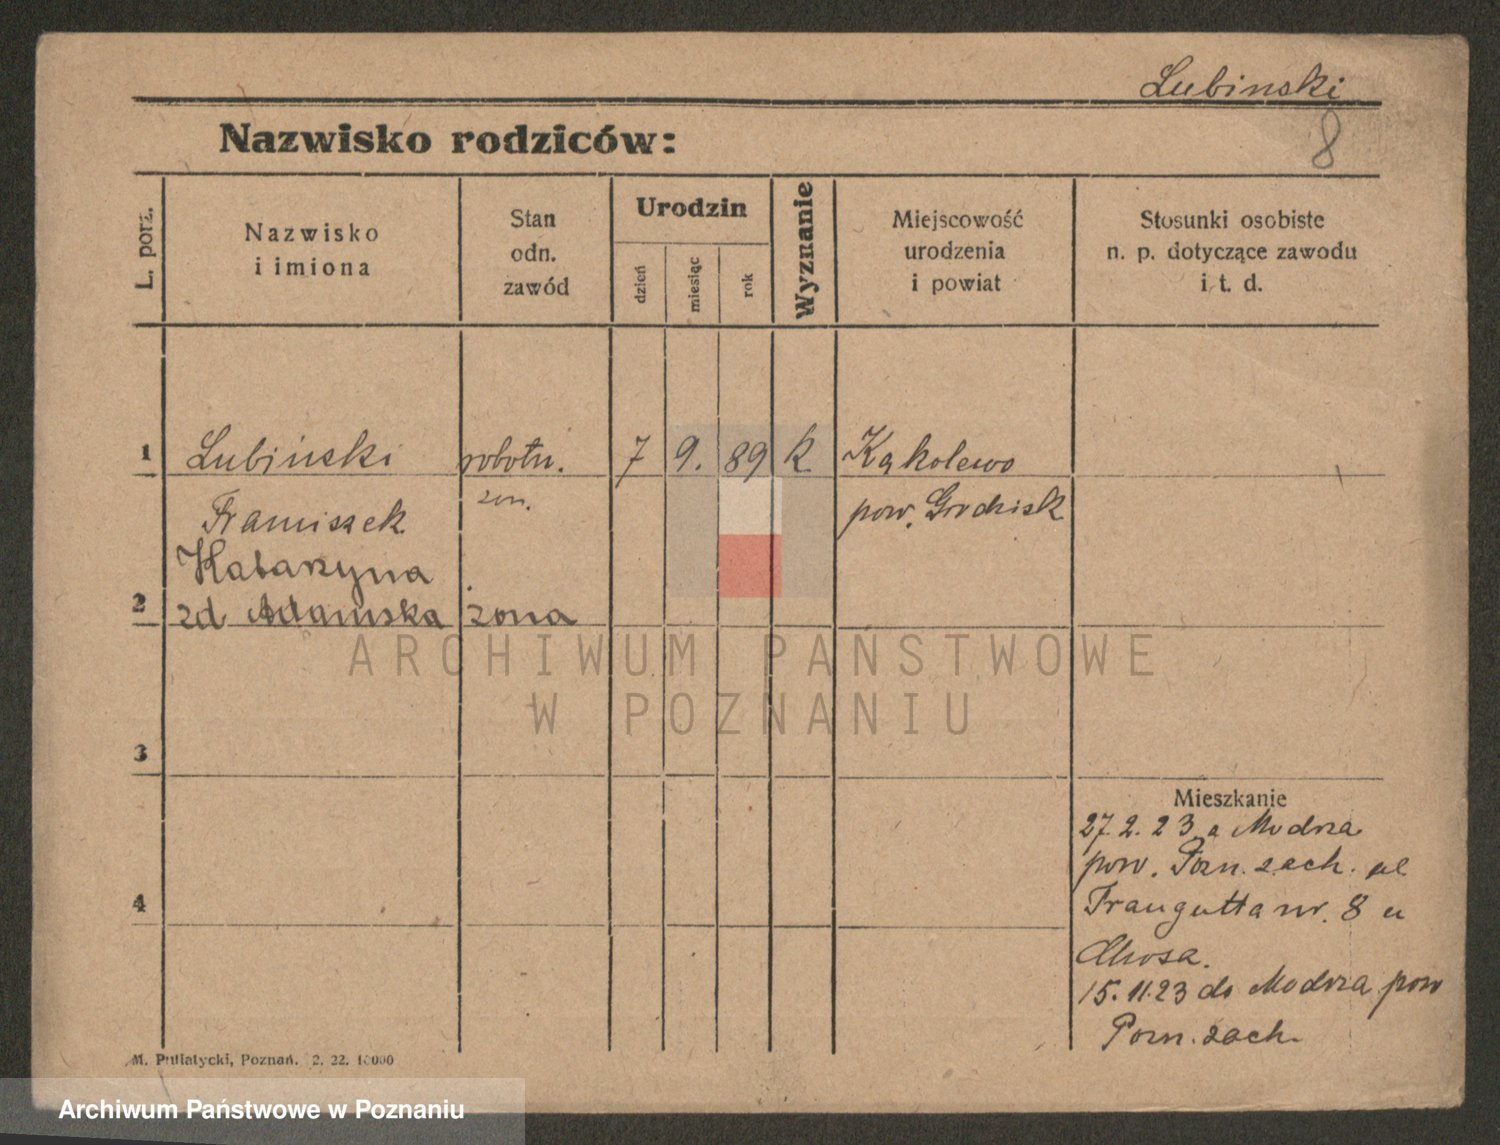 Lubinski
8
Nazwisko rodziców:
L. porz.
Nazwisko
i imiona
Stan
odn.
zawód
Urodzin
dzień
miesiąc
rok
Wyznanie
Miejscowość
urodzenia
i powiat
Stosunki osobiste
n. p. dotyczące zawodu
i t. d.
1 Lubiński robotn. 7 9. 89 k Kąkolewo
żon.
Franciszek pow. Grodzisk
Katarzyna
2 zd Adamska żona
ARCHIWUM PAŃSTWOWE
W POZNANIU
3
Mieszkanie
27.2.23 a Modrza
pow. Pozn. zach. ul
4 Traugutta nr. 8 u
15.11.23 do Modrza pow
Pozn. zach.
M. Putiatycki, Poznań. 2. 22. 10000
Archiwum Państwowe w Poznaniu